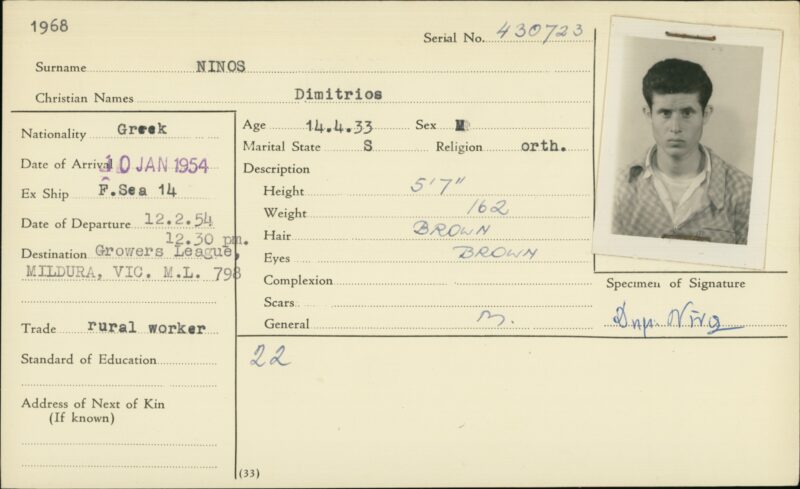 1968
Serial No. 430723
Surname NINOS
Christian Names Dimitrios
Nationality Greek
Date of Arrival 10 JAN 1954
Ex Ship F.Sea 14
Date of Departure 12.2.54
12.30 pm.
Destination Growers League,
MILDURA, VIC. M.L. 798
Trade rural worker
Standard of Education
Address of Next of Kin
(If known)
Age 14.4.33 Sex M
Marital State S Religion orth.
Description
Height 5'7"
Weight 162
Hair BROWN
Eyes BROWN
Complexion
Scars
General M.
Specimen of Signature
22
(33)